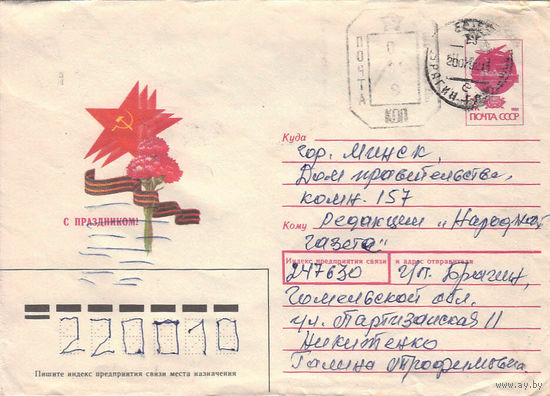 ПОЧТА
КОП
ПОЧТА СССР
С ПРАЗДНИКОМ!
Куда
гор. Минск,
Дом правительства,
комн. 157
Кому
Редакции „Народная
газета"
Индекс предприятия связи и адрес отправителя
247630
г/п. Брагин,
Гомельской обл.
ул. Партизанская 11
Никитенко
Галина Трофимовна
220010
Пишите индекс предприятия связи места назначения
www.ay.by